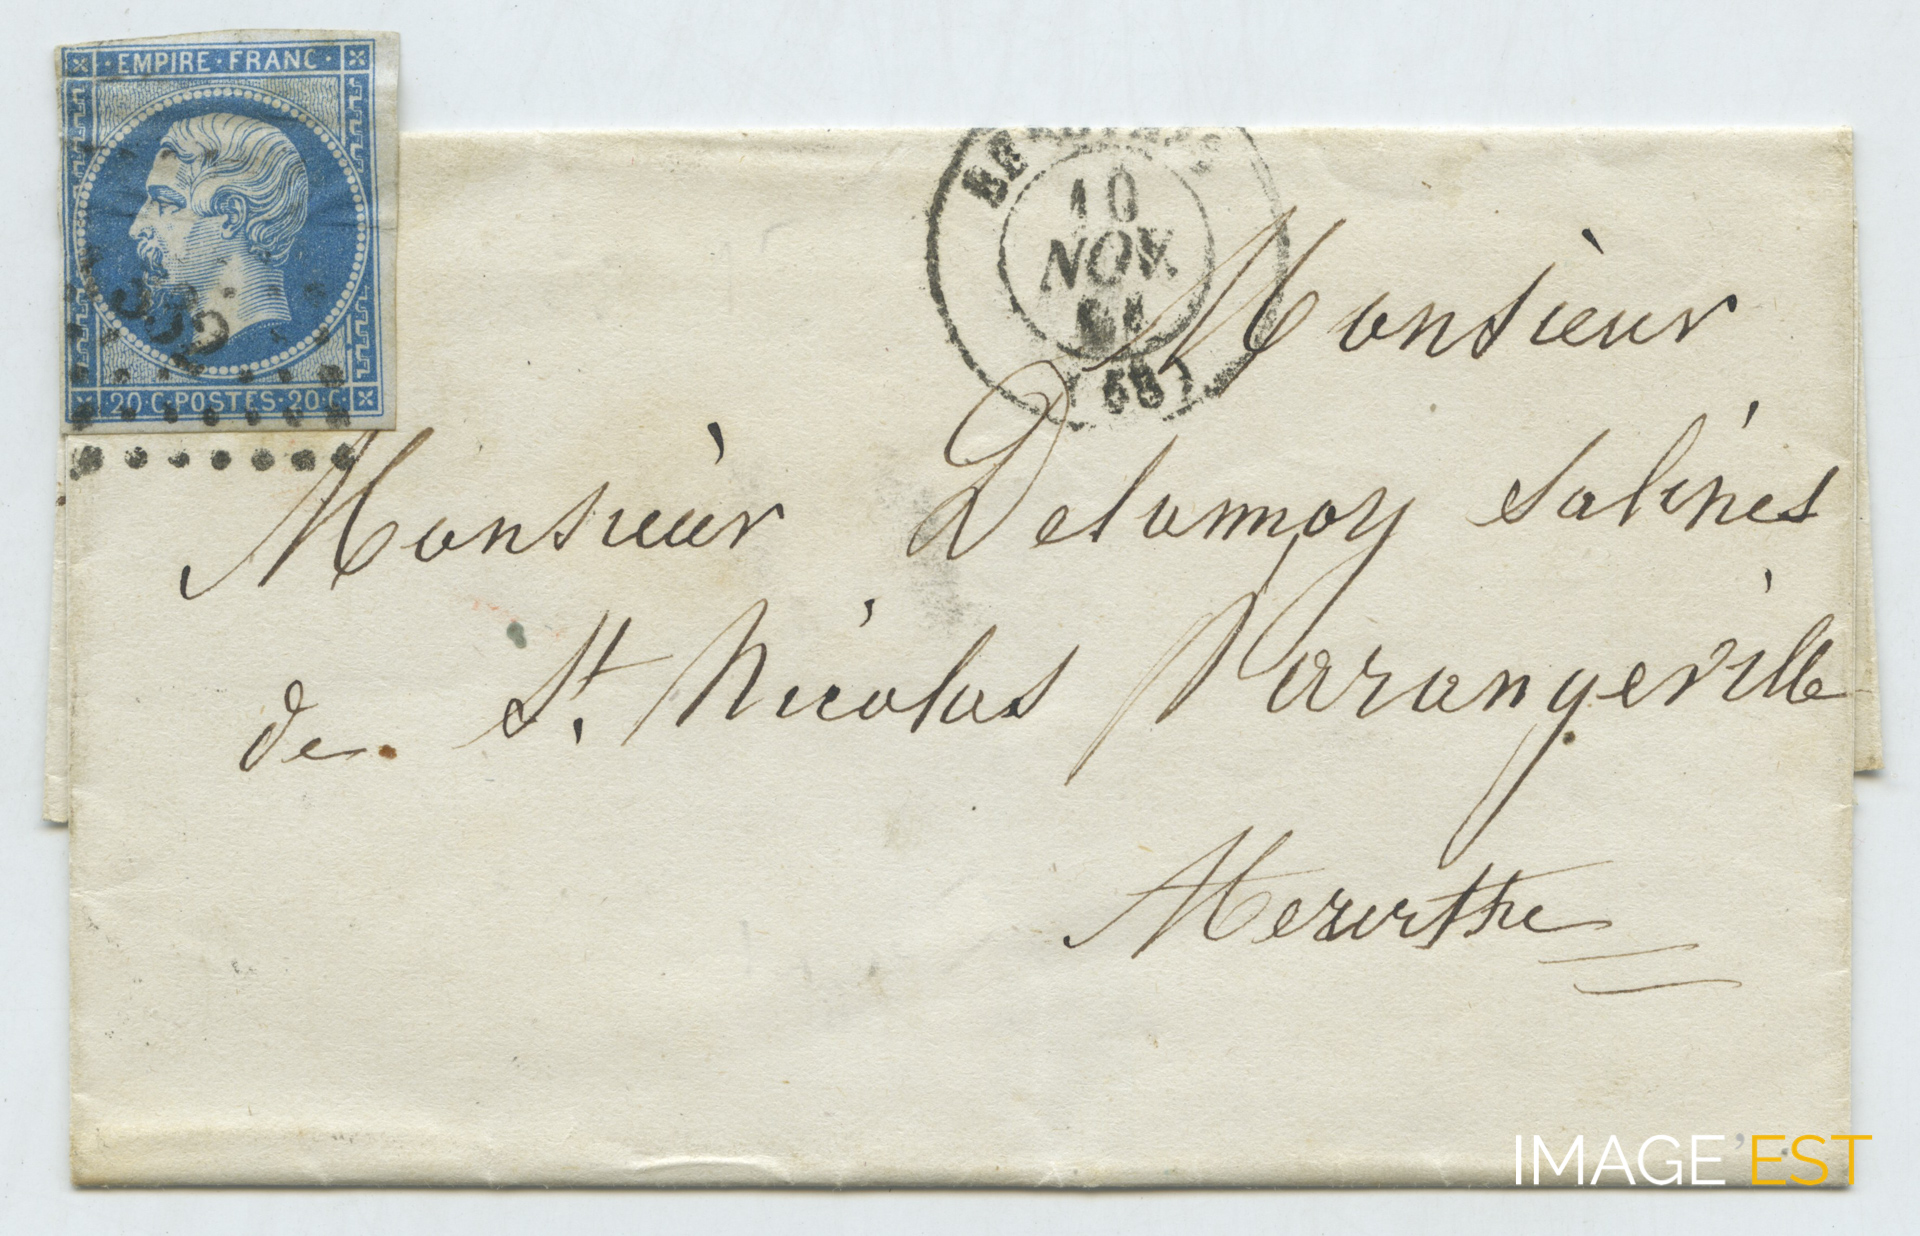 · EMPIRE · FRANC ·
332
20 · C · POSTES · 20 · C ·
10
NOV.
61
(68)
Monsieur
Monsieur Delannoy Salines
de St. Nicolas Varangeville
Meurthe
IMAGE'EST